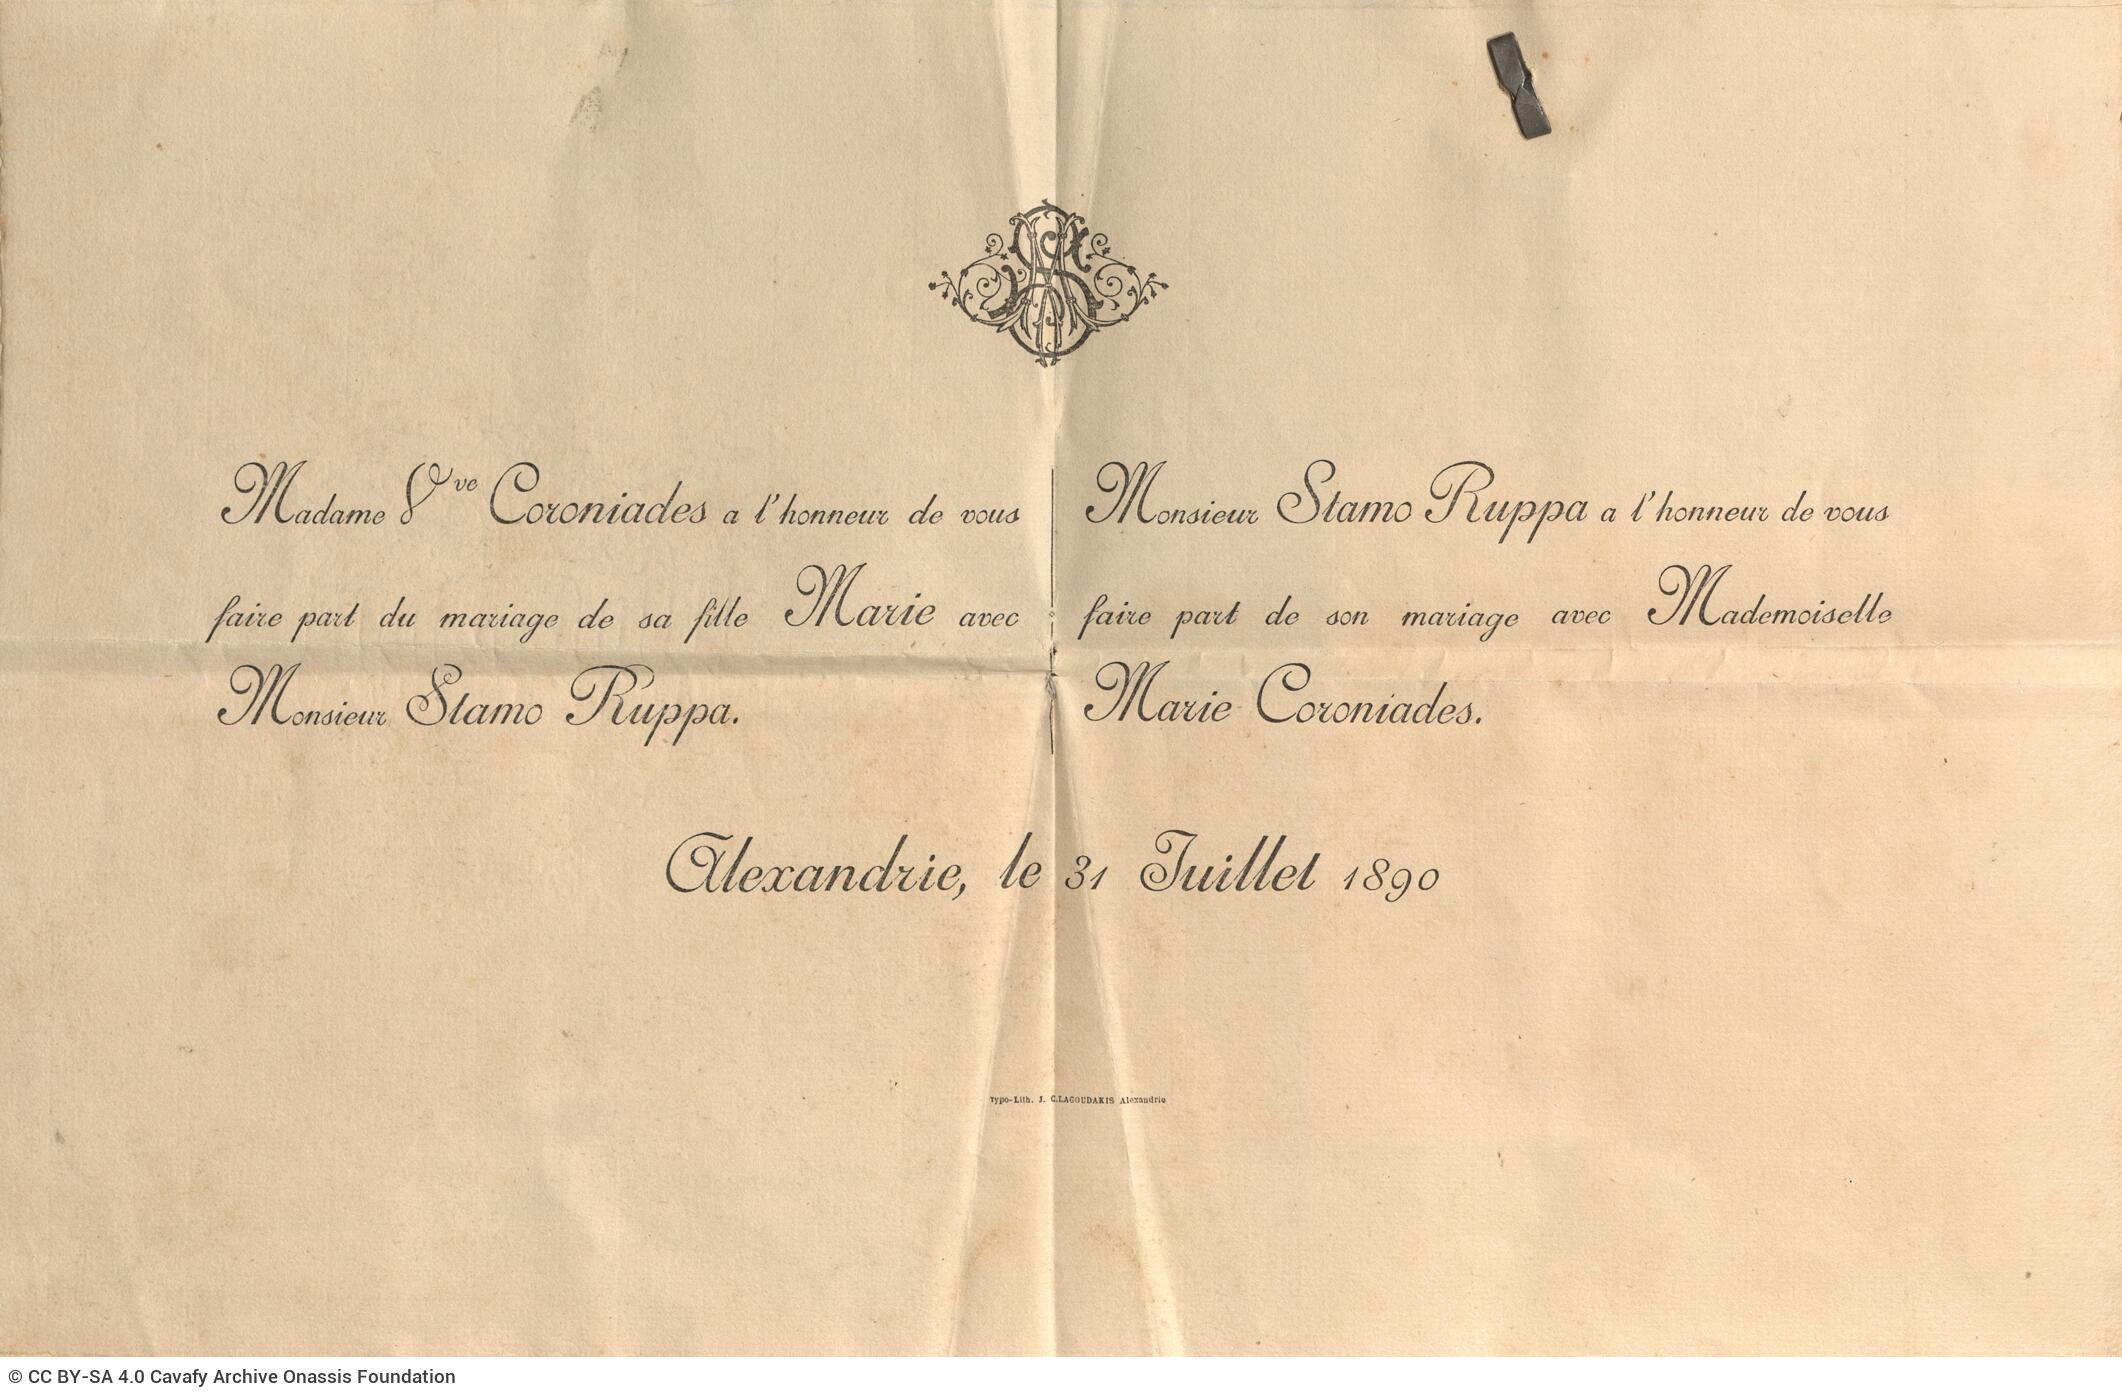 Madame Vve Coroniades a l'honneur de vous
faire part du mariage de sa fille Marie avec
Monsieur Stamo Ruppa.
Monsieur Stamo Ruppa a l'honneur de vous
faire part de son mariage avec Mademoiselle
Marie Coroniades.
Alexandrie, le 31 Juillet 1890
Typo-Lith. J. C. LAGOUDAKIS Alexandrie
© CC BY-SA 4.0 Cavafy Archive Onassis Foundation